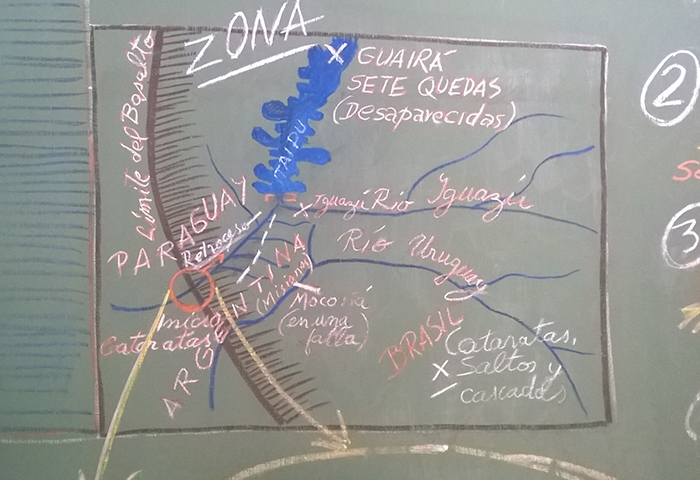 ZONA
Límite del Basalto
X GUAIRÁ
SETE QUEDAS
(Desaparecidas)
ITAIPU
PARAGUAY
Retroceso
X Iguazú Río Iguazú
Río Uruguay
ARGENTINA
(Misiones)
Moconá
(en una
falla)
micro
Cataratas
BRASIL
Cataratas,
X Saltos y
cascadas
2
3